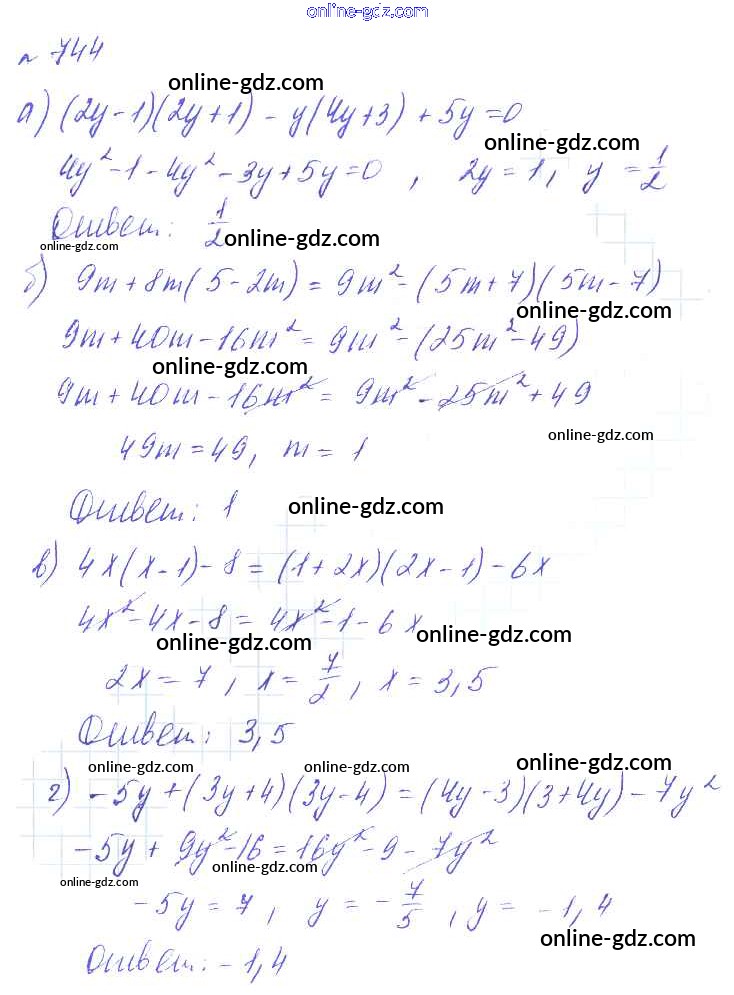 online-gdz.com
№ 744
online-gdz.com
а) (2y-1)(2y+1) - y(4y+3) + 5y = 0
online-gdz.com
4y² - 1 - 4y² - 3y + 5y = 0 , 2y = 1, y = 1/2
Ответ: 1/2
online-gdz.com
online-gdz.com
б) 9m + 8m(5 - 2m) = 9m² - (5m + 7)(5m - 7)
online-gdz.com
9m + 40m - 16m² = 9m² - (25m² - 49)
online-gdz.com
9m + 40m - 16m² = 9m² - 25m² + 49
online-gdz.com
49m = 49, m = 1
Ответ: 1
online-gdz.com
в) 4x(x - 1) - 8 = (1 + 2x)(2x - 1) - 6x
4x² - 4x - 8 = 4x² - 1 - 6x
online-gdz.com
online-gdz.com
2x = 7, x = 7/2, x = 3,5
Ответ: 3,5
online-gdz.com
online-gdz.com
online-gdz.com
г) -5y + (3y + 4)(3y - 4) = (4y - 3)(3 + 4y) - 7y²
-5y + 9y² - 16 = 16y² - 9 - 7y²
online-gdz.com
online-gdz.com
-5y = 7, y = -7/5, y = -1,4
online-gdz.com
Ответ: -1,4